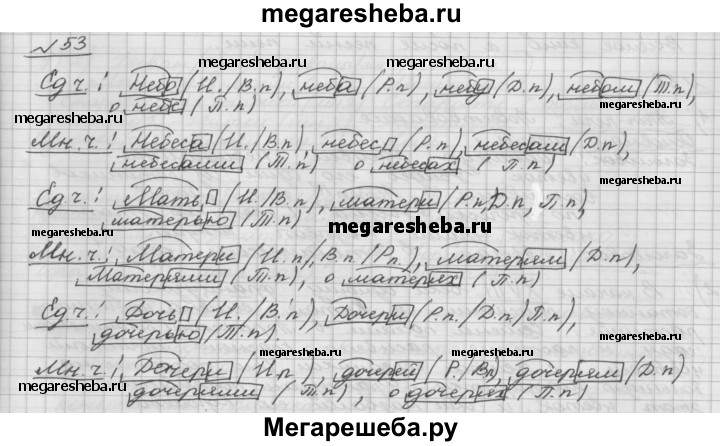 megaresheba.ru
№ 53
megaresheba.ru
megaresheba.ru
Ед.ч.: Небо (И./В.п), неба (Р.п), небу (Д.п), небом (Т.п),
о небе (П.п)
megaresheba.ru
megaresheba.ru
Мн.ч.: Небеса (И./В.п), небес (Р.п), небесам (Д.п),
небесами (Т.п) о небесах (П.п)
megaresheba.ru
megaresheba.ru
Ед.ч.: Мать (И./В.п), матери (Р.п, Д.п, П.п),
матерью (Т.п)
megaresheba.ru
megaresheba.ru
Мн.ч.: Матери (И.п/В.п/Р.п), матерям (Д.п),
Матерями (Т.п), о матерях (П.п)
megaresheba.ru
megaresheba.ru
Ед.ч.: Дочь (И./В.п), Дочери (Р.п./Д.п) П.п),
дочерью (Т.п).
megaresheba.ru
megaresheba.ru
Мн.ч.: Дочери (И.п), дочерей (Р./Вп), дочерям (Д.п)
дочерями (Т.п), о дочерях (П.п)
megaresheba.ru
megaresheba.ru
Мегарешеба.ру